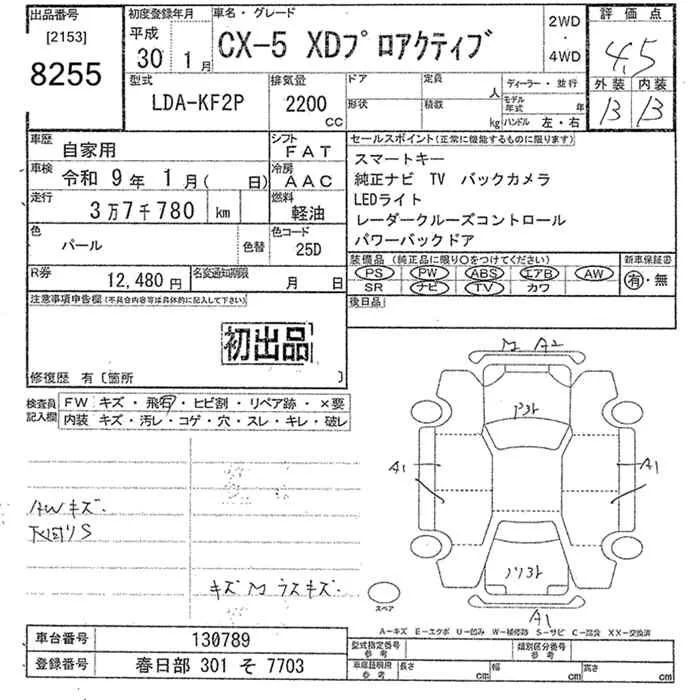 出品番号
[2153]
8255
初度登録年月
平成
30 1月
車名・グレード
CX-5 XDプロアクティブ
2WD
・
4WD
評価点
4.5
外装 内装
B B
型式
LDA-KF2P
排気量
2200
CC
ドア
形状
定員
人
積載
kg
ディーラー・並行
モデル年式 年
ハンドル 左・右
車歴
自家用
シフト
FAT
車検
令和 9年 1月( 日)
冷房
AAC
走行
3万7千780 km
燃料
軽油
色
パール
色替
色コード
25D
R券
12,480円
名変通知期限
月 日
セールスポイント(正常に機能するものに限ります)
スマートキー
純正ナビ TV バックカメラ
LEDライト
レーダークルーズコントロール
パワーバックドア
装備品 (純正品に限り○をつけてください)
PS PW ABS エアB AW
SR ナビ TV カワ
新車保証書
有・無
後日品
注意事項申告欄(不具合内容等は具体的に記入して下さい)
初出品
修復歴 有〔箇所 〕
検査員
記入欄
FW キズ・飛石・ヒビ割・リペア跡・×要
内装 キズ・汚レ・コゲ・穴・スレ・キレ・破レ
AWキズ.
下回りS
キズMウスキズ.
M A2
A1
A1
A1
スペア
A-キズ E-エクボ U-凹み W-補修跡 S-サビ C-腐食 XX-交換済
車台番号
130789
登録番号
春日部 301 そ 7703
型式指定番号
参考
類別区分番号
参考
車庫証明用
参考
長さ
cm
幅
cm
高さ
cm